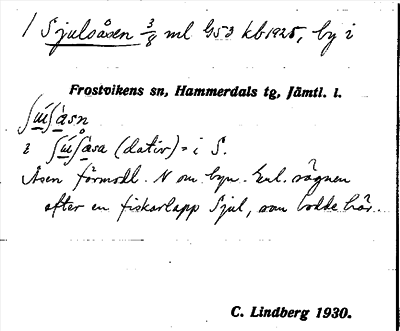 1 Sjulsåsen 3/8 ml G53 kb 1925, by i
Frostvikens sn, Hammerdals tg, Jämtl. l.
ʃɯ́ʃåsn
i ʃɯ́ʃåsa (dativ) = i S.
Åsen förmodl. N om byn. Enl. sägnen
efter en fiskarlapp Sjul, som bodde här.
C. Lindberg 1930.